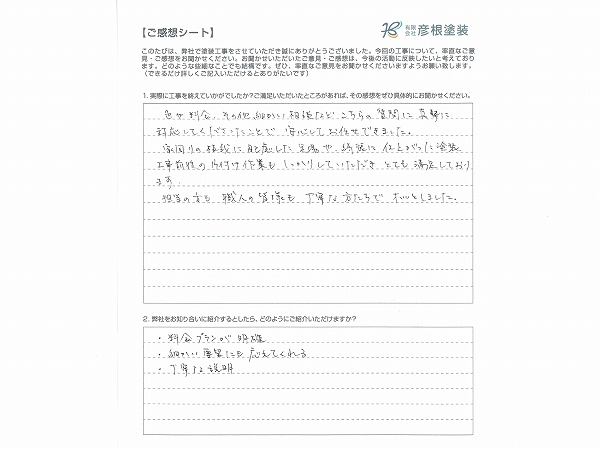 【ご感想シート】
有限会社 彦根塗装
このたびは、弊社で塗装工事をさせていただき誠にありがとうございました。今回の工事について、率直なご意
見・ご感想をお聞かせください。お聞かせいただいたご意見・ご感想は、今後の活動に反映したいと考えており
ます。どのような些細なことでも結構です。ぜひ、率直なご意見をお聞かせくださいますようお願い致します。
（できるだけ詳しくご記入いただけるとありがたいです）
1. 実際に工事を終えていかがでしたか？ご満足いただいたところがあれば、その感想をぜひ具体的にお聞かせください。
色や料金、その他細かい相談などこちらの質問に真摯に
対応してくださったことで安心してお任せできました。
家周りの植栽に配慮した足場や、綺麗に仕上がった塗装
工事前後の片付け作業もしっかりしていただきとても満足しており
ます。
担当の方も職人の皆様も丁寧な方たちでホッとしました。
2. 弊社をお知り合いに紹介するとしたら、どのようにご紹介いただけますか？
・料金プランが明確
・細かい要望にも応えてくれる
・丁寧な説明